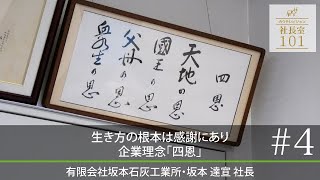 四恩
天地の恩
國王の恩
父母の恩
衆生の恩
社長室
101
生き方の根本は感謝にあり
企業理念「四恩」
#4
有限会社坂本石灰工業所・坂本 達宣 社長